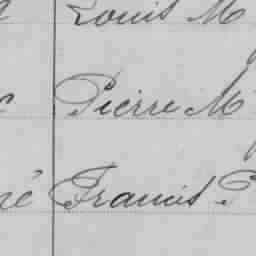 Louis M
Pierre M
né Francis P